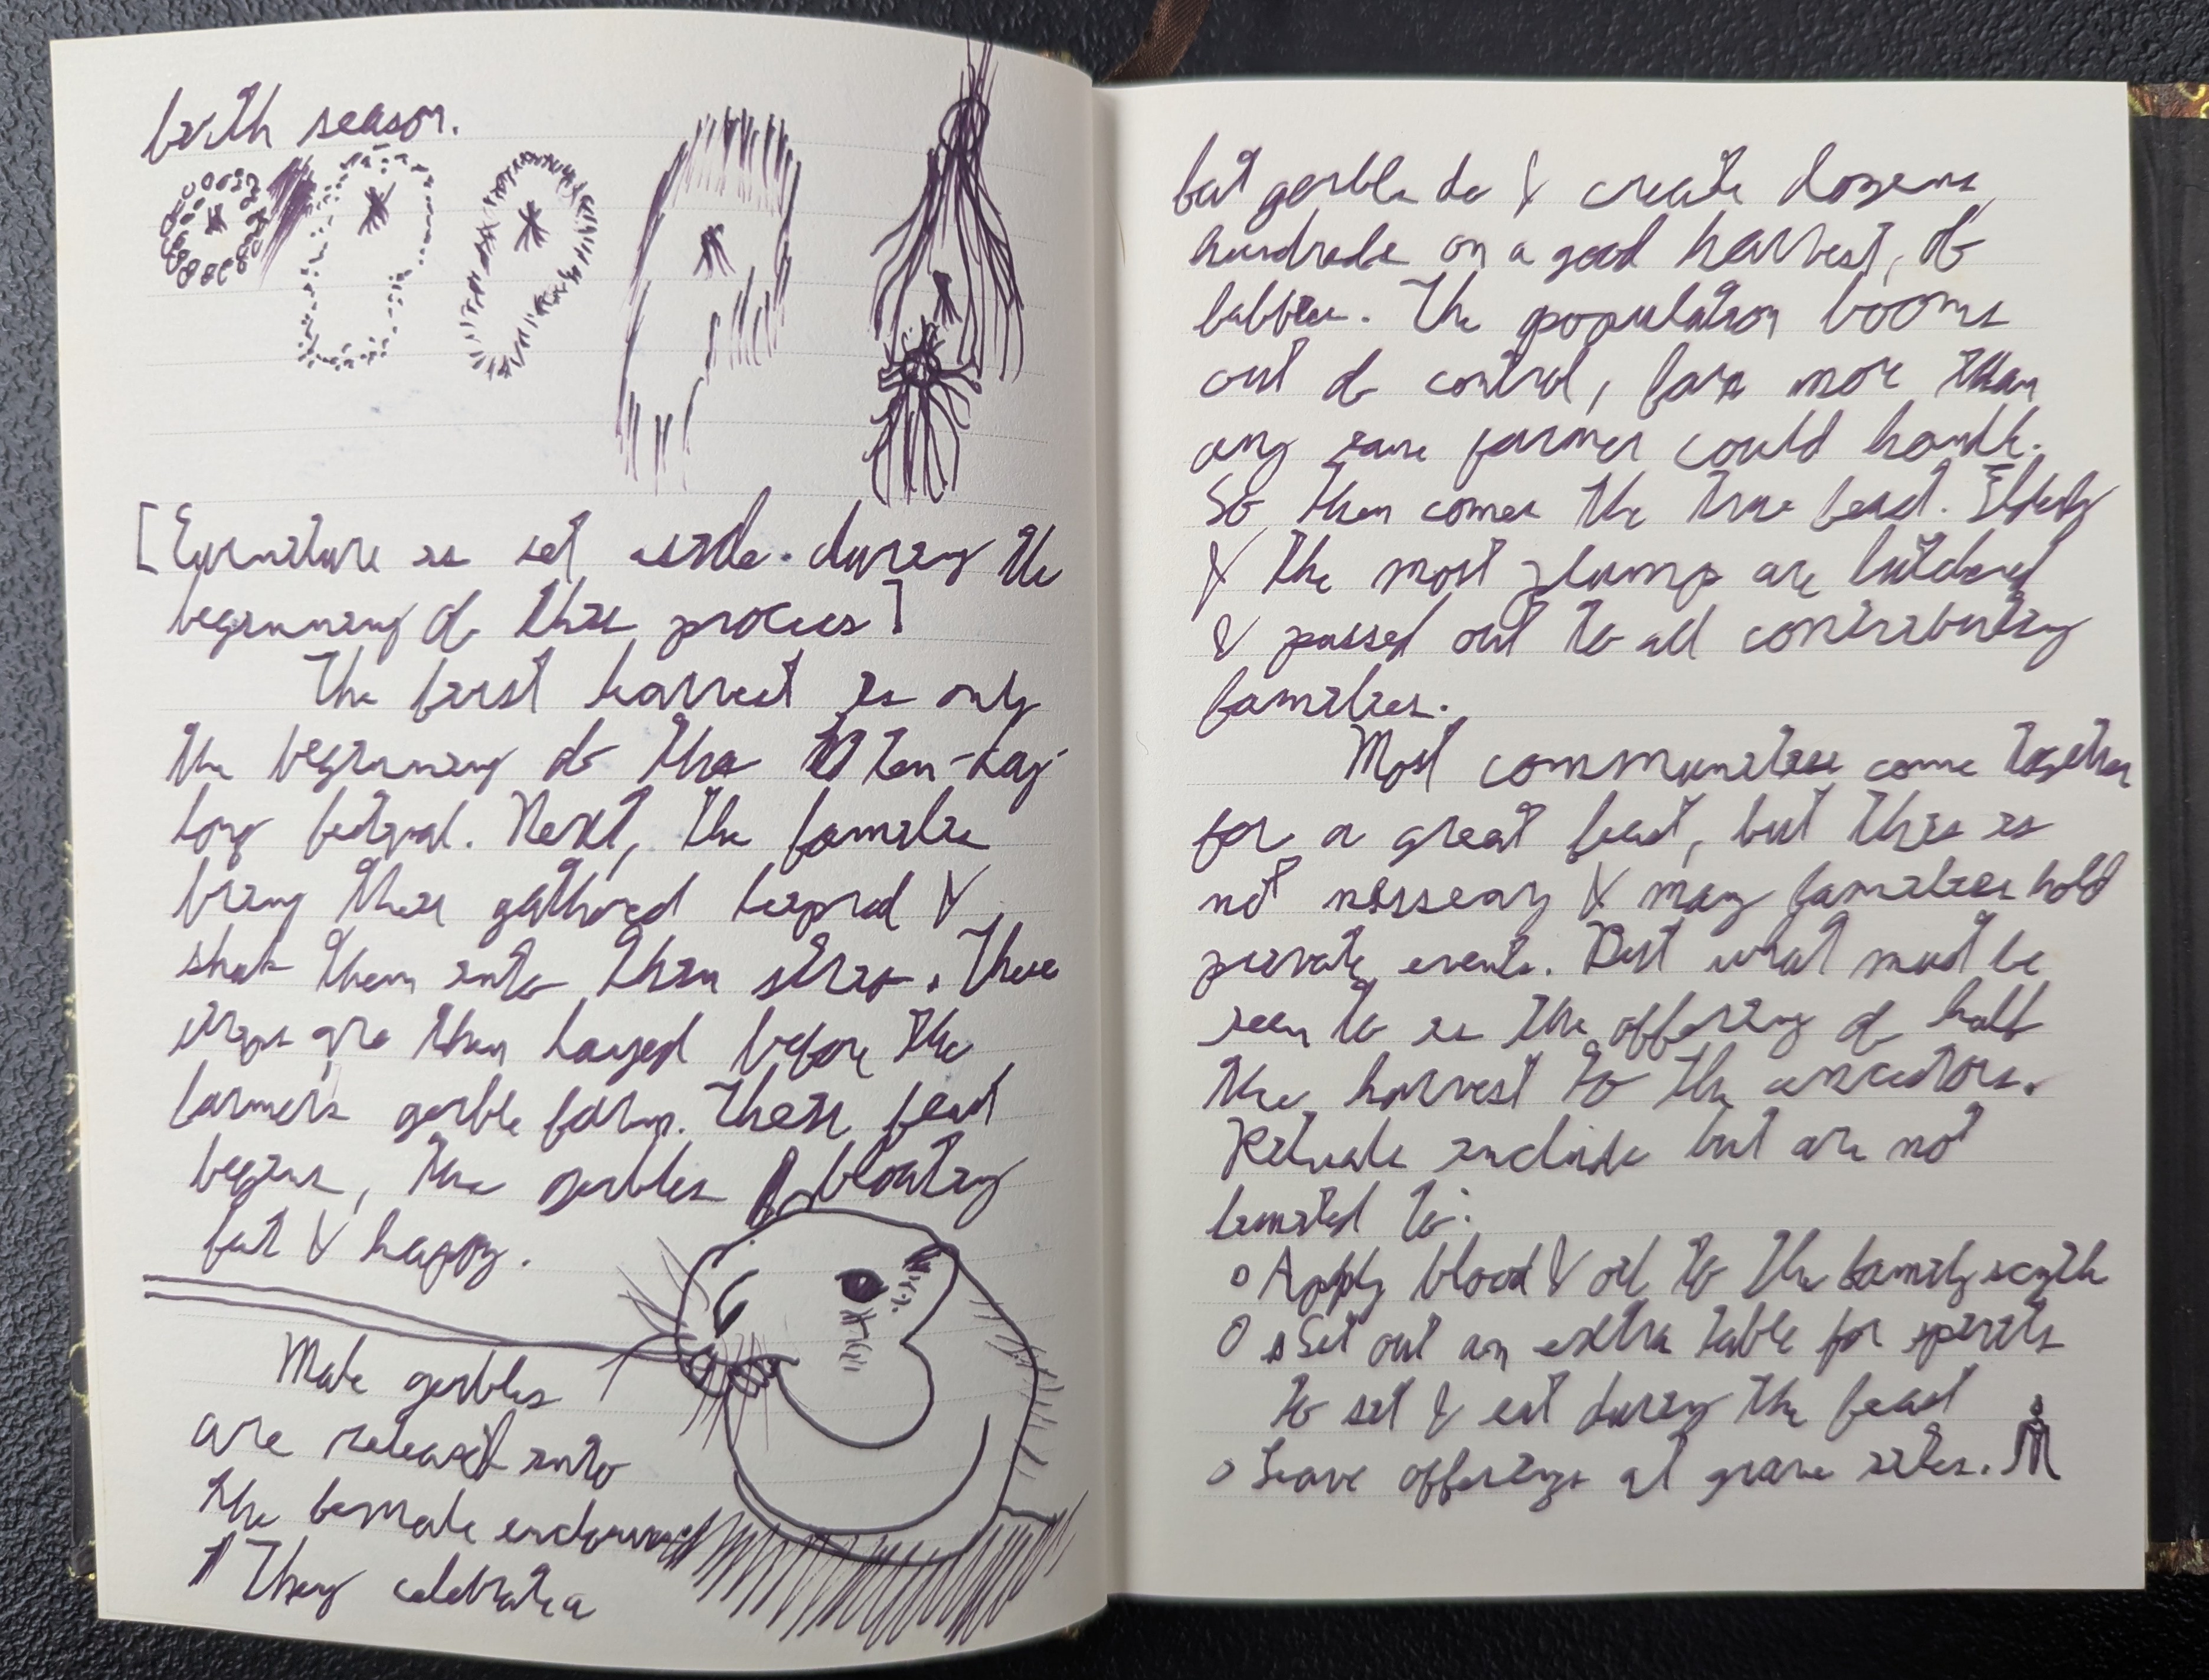 birth season.
[Furniture is set aside during the
beginning of this process]
The first harvest is only
the beginning of this ten-day
long festival. Next, the families
bring their gathered &
them into thin strips. These
strips are then layed before the
farmers gerble farm. Their feast
begins, the gerbles bloating
fat & happy.
Male gerbles
are released into
the female enclosure
They celebrate a
but gerble do & create dozens,
hundreds on a good harvest, of
babies. The population booms
out of control, far more than
any sane farmer could handle.
So then comes the true feast. Elderly
& the most plump are butchered
& passed out to all contributing
families.
Most communities come together
for a great feast, but this is
not nessesary & many families hold
private events. But what must be
seen to is the offering of half
the harvest to the ancestors.
Rituals include but are not
limited to:
o Apply blood & oil to the family scythe
o Set out an extra table for spirits
to sit & eat during the feast
o Leave offerings at grave sites.